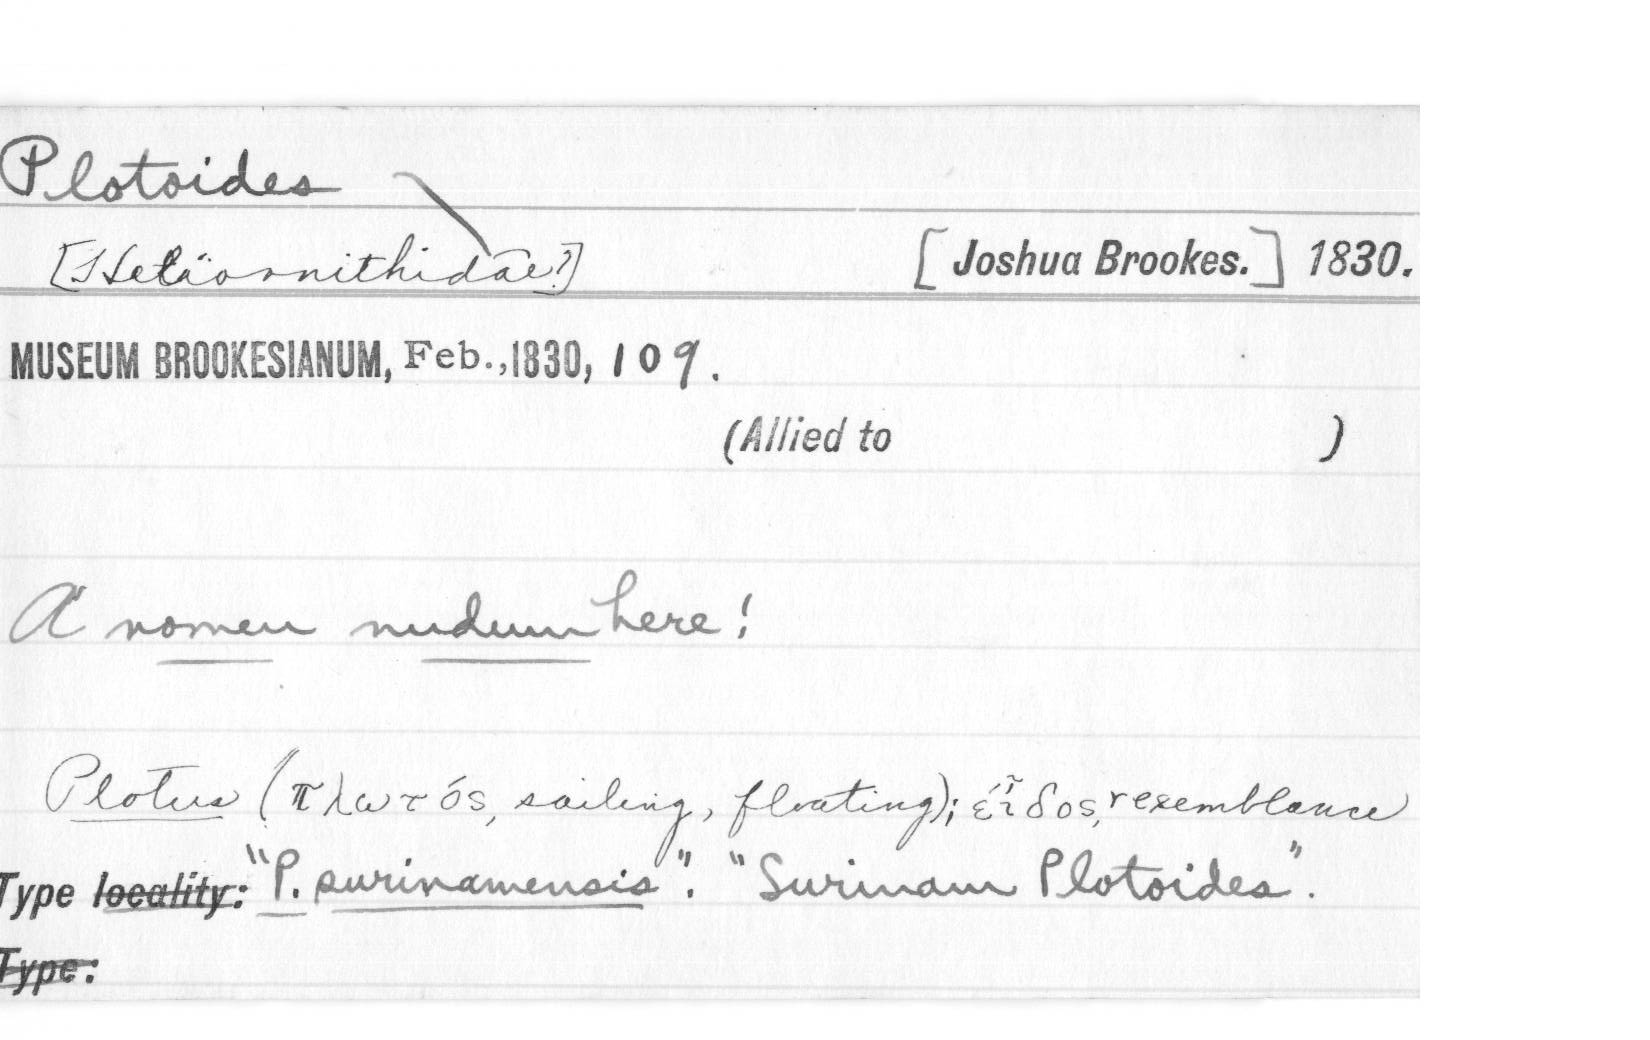 Plotoides
[Hetäornithidae?] [Joshua Brookes.] 1830.
MUSEUM BROOKESIANUM, Feb., 1830, 109.
(Allied to )
A nomen nudum here!
Plotus (πλωτός, sailing, floating); εἶδος, resemblance
Type locality: "P. surinamensis". "Surinam Plotoides".
Type: